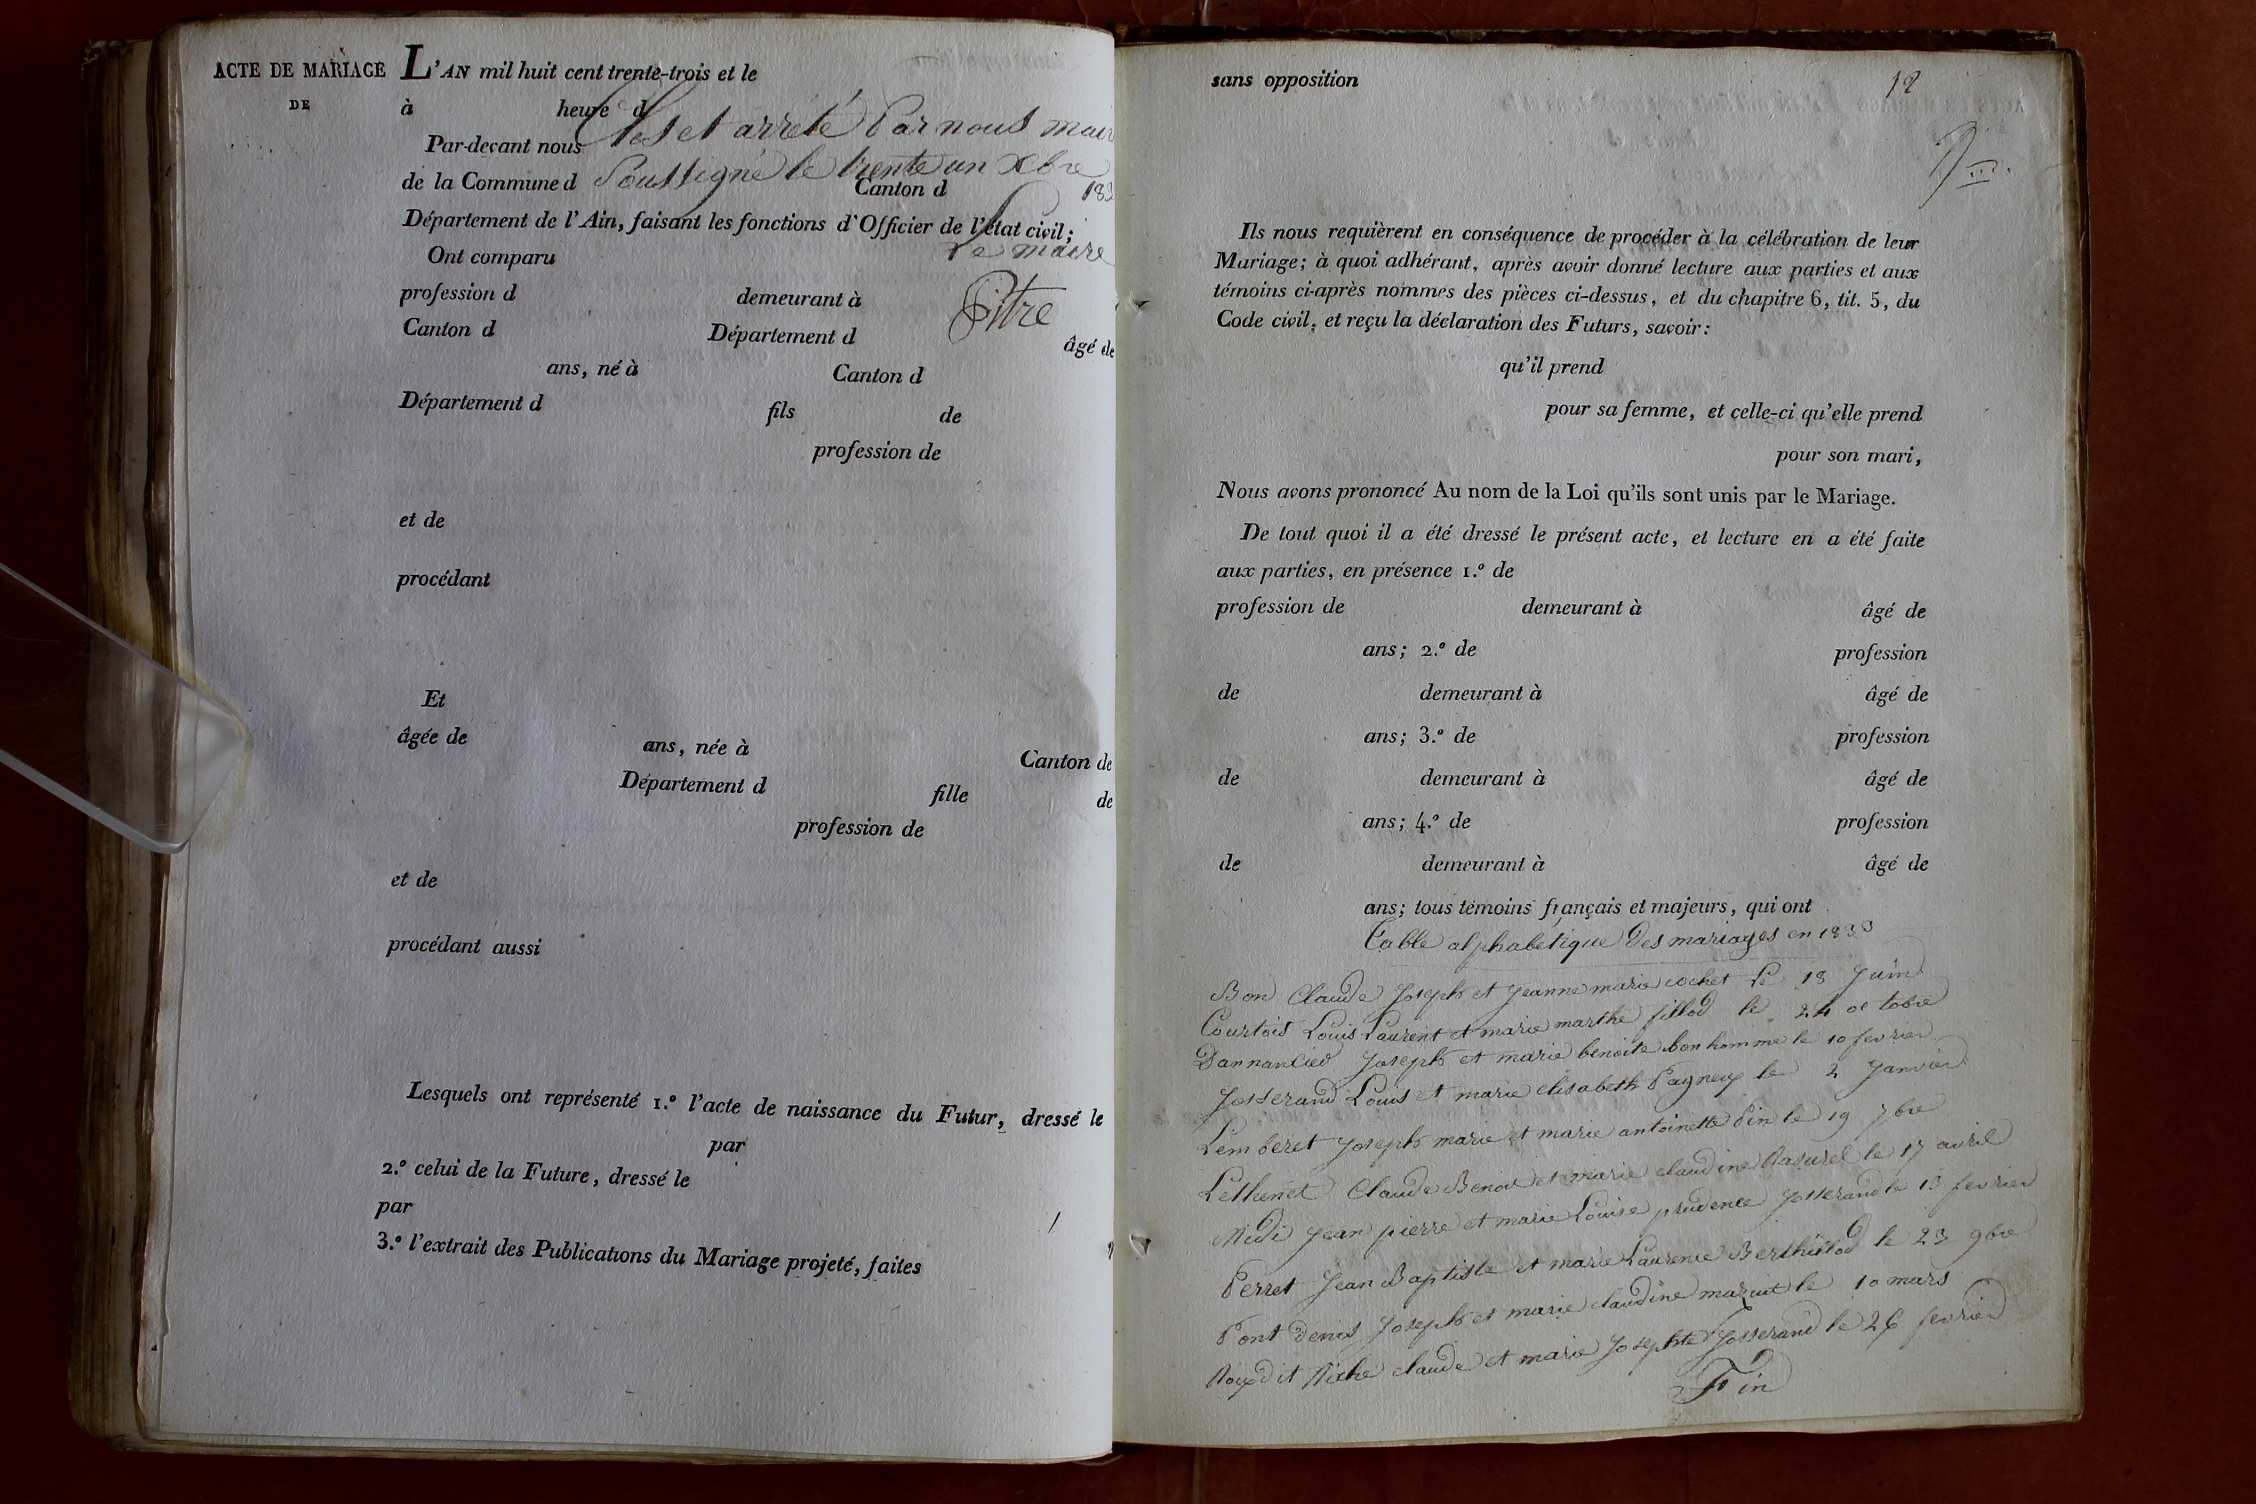 ACTE DE MARIAGE
DE
L'AN mil huit cent trente-trois et le
à heure d
Clos et arrêté Par nous mair
Par-devant nous
Soussigné le trente un Xbre
de la Commune d Canton d 183
Département de l'Ain, faisant les fonctions d'Officier de l'état civil;
Le maire
Ont comparu
profession d demeurant à
Pitre
Canton d Département d âgé de
ans, né à Canton d
Département d fils de
profession de
et de
procédant
Et
âgée de ans, née à Canton de
Département d fille de
profession de
et de
procédant aussi
Lesquels ont représenté 1.º l'acte de naissance du Futur, dressé le
par
2.º celui de la Future, dressé le
par
3.º l'extrait des Publications du Mariage projeté, faites
sans opposition
12
Ils nous requièrent en conséquence de procéder à la célébration de leur
Mariage; à quoi adhérant, après avoir donné lecture aux parties et aux
témoins ci-après nommés des pièces ci-dessus, et du chapitre 6, tit. 5, du
Code civil, et reçu la déclaration des Futurs, savoir:
qu'il prend
pour sa femme, et celle-ci qu'elle prend
pour son mari,
Nous avons prononcé Au nom de la Loi qu'ils sont unis par le Mariage.
De tout quoi il a été dressé le présent acte, et lecture en a été faite
aux parties, en présence 1.º de
profession de demeurant à âgé de
ans; 2.º de profession
de demeurant à âgé de
ans; 3.º de profession
de demeurant à âgé de
ans; 4.º de profession
de demeurant à âgé de
ans; tous témoins français et majeurs, qui ont
Table alphabetique Des mariages en 1833
Bon Claude Joseph et Jeanne marie cochet Le 18 Juin
Courtois Louis Laurent et marie marthe fillod le 24 octobre
Dannancied Joseph et marie benoite bonhomme le 10 fevrier
Josserand Louis et marie elisabeth Pagneux le 2 Janvier
Lemberet Joseph marie et marie antoinette Pin le 19 7bre
Lethenet Claude Benoit et marie claudine Rasurel le 17 avril
Midi Jean pierre et marie Louise prudence Josserand le 13 fevrier
Perret Jean Baptiste et marie Laurence Berthillod le 23 9bre
Pont Denis Joseph et marie claudine mazuit le 10 mars
Roux dit Riche claude et marie Josephte Josserand le 26 fevrier
Fin